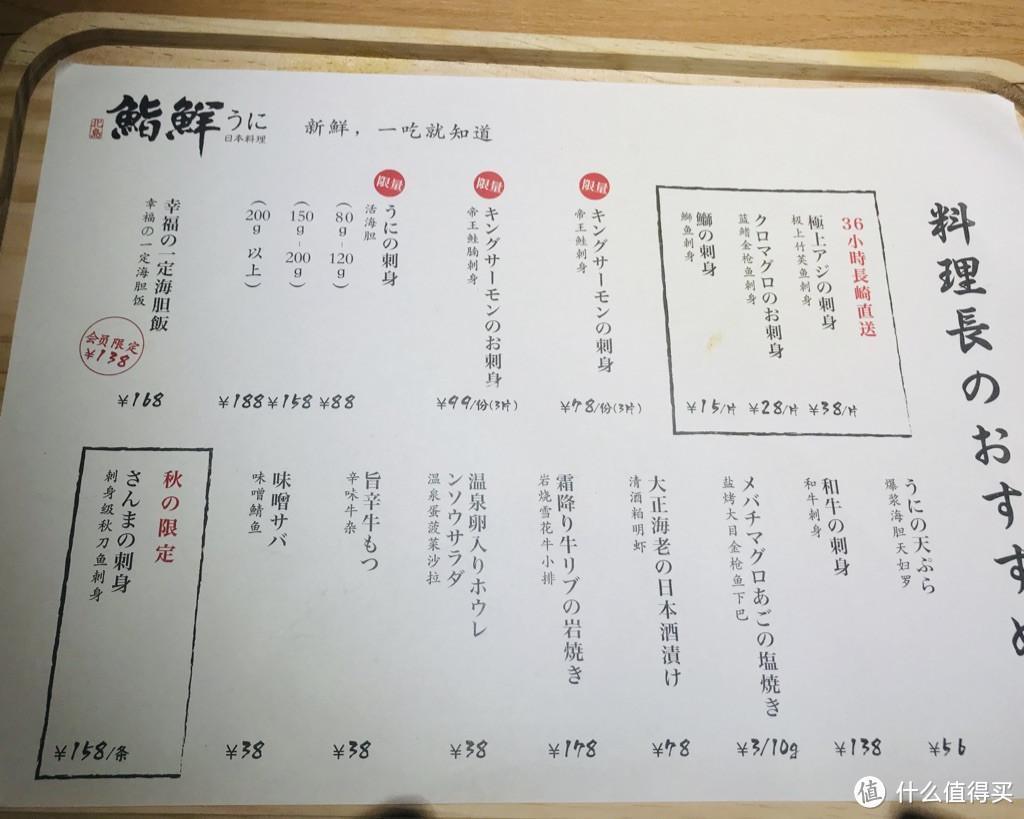 北島
鮨鮮うに
日本料理
新鮮，一吃就知道
料理長のおすすめ
36小時長崎直送
極上アジの刺身
极上竹荚鱼刺身
¥38/片
クロマグロのお刺身
蓝鳍金枪鱼刺身
¥28/片
鰤の刺身
鰤鱼刺身
¥15/片
限量
キングサーモンの刺身
帝王鲑刺身
¥78/份(3片)
限量
キングサーモンのお刺身
帝王鲑腩刺身
¥99/份(3片)
限量
うにの刺身
活海胆
(80g-120g)
¥88
(150g-200g)
¥158
(200g以上)
¥188
幸福の一定海胆飯
幸福の一定海胆饭
会员限定
¥138
¥168
うにの天ぷら
爆浆海胆天妇罗
¥56
和牛の刺身
和牛刺身
¥138
メバチマグロあごの塩焼き
盐烤大目金枪鱼下巴
¥3/10g
大正海老の日本酒漬け
清酒粕明虾
¥78
霜降り牛リブの岩焼き
岩烧雪花牛小排
¥178
温泉卵入りホウレ
ンソウサラダ
温泉蛋菠菜沙拉
¥38
旨辛牛もつ
辛味牛杂
¥38
味噌サバ
味噌鲭鱼
¥38
秋の限定
さんまの刺身
刺身级秋刀鱼刺身
¥158/条
值 什么值得买